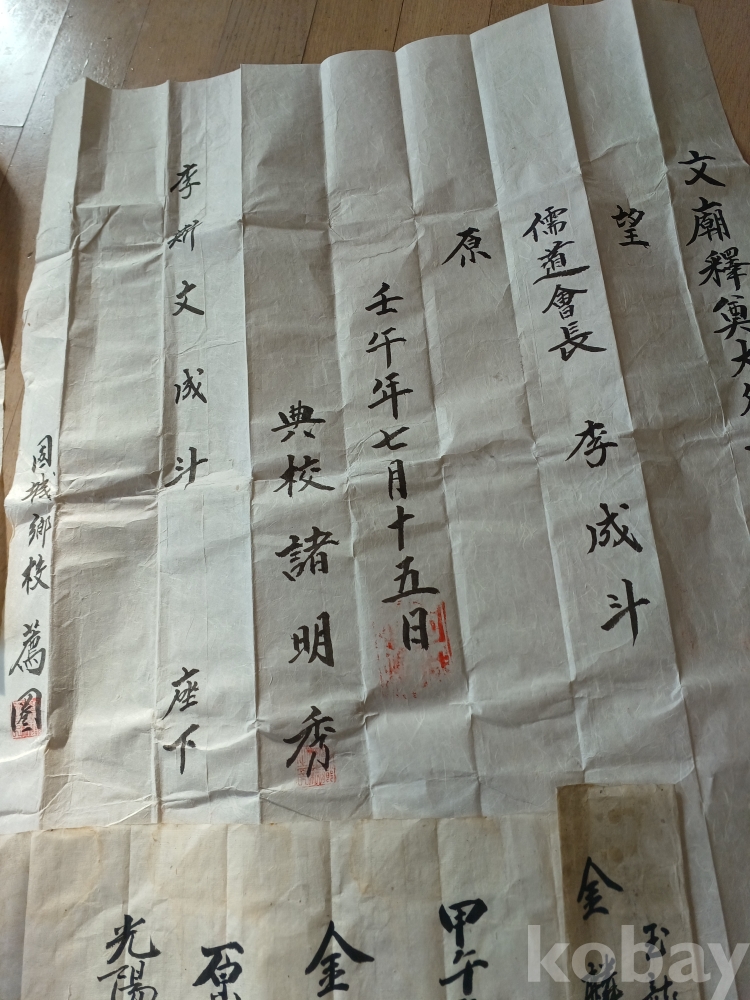 文廟釋奠大
望
儒道會長 李成斗
原
壬午年七月十五日
典校 諸明秀
李斯文成斗 座下
固城鄕校 薦圈
金
甲午
金
光陽
kobay